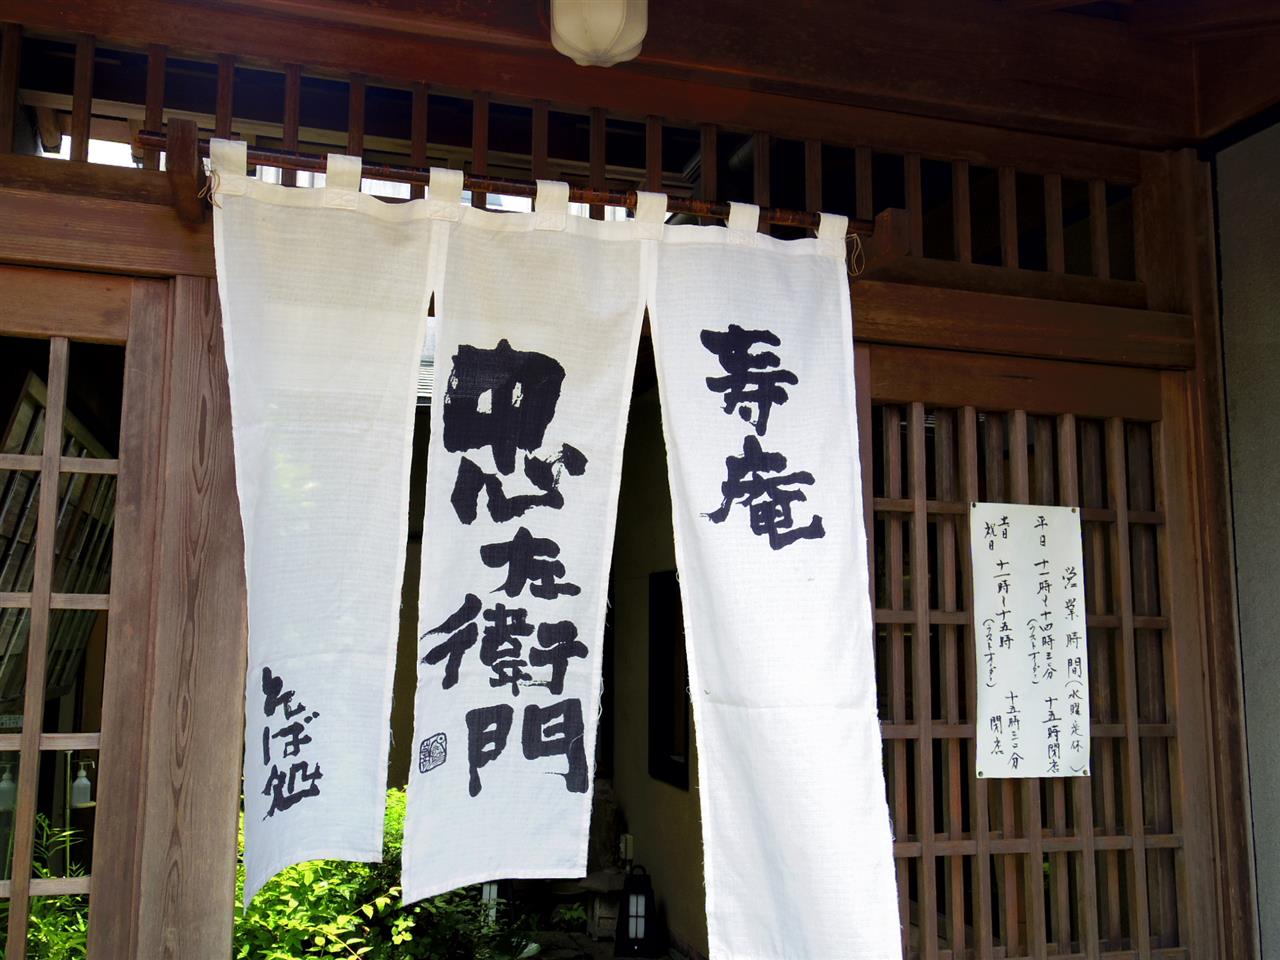 寿庵
忠左衛門
そば処
営業時間(水曜定休)
平日 十一時〜十四時三〇分 十五時閉店
(ラストオーダー)
土日 十一時〜十五時 十五時三〇分
祝日 (ラストオーダー) 閉店